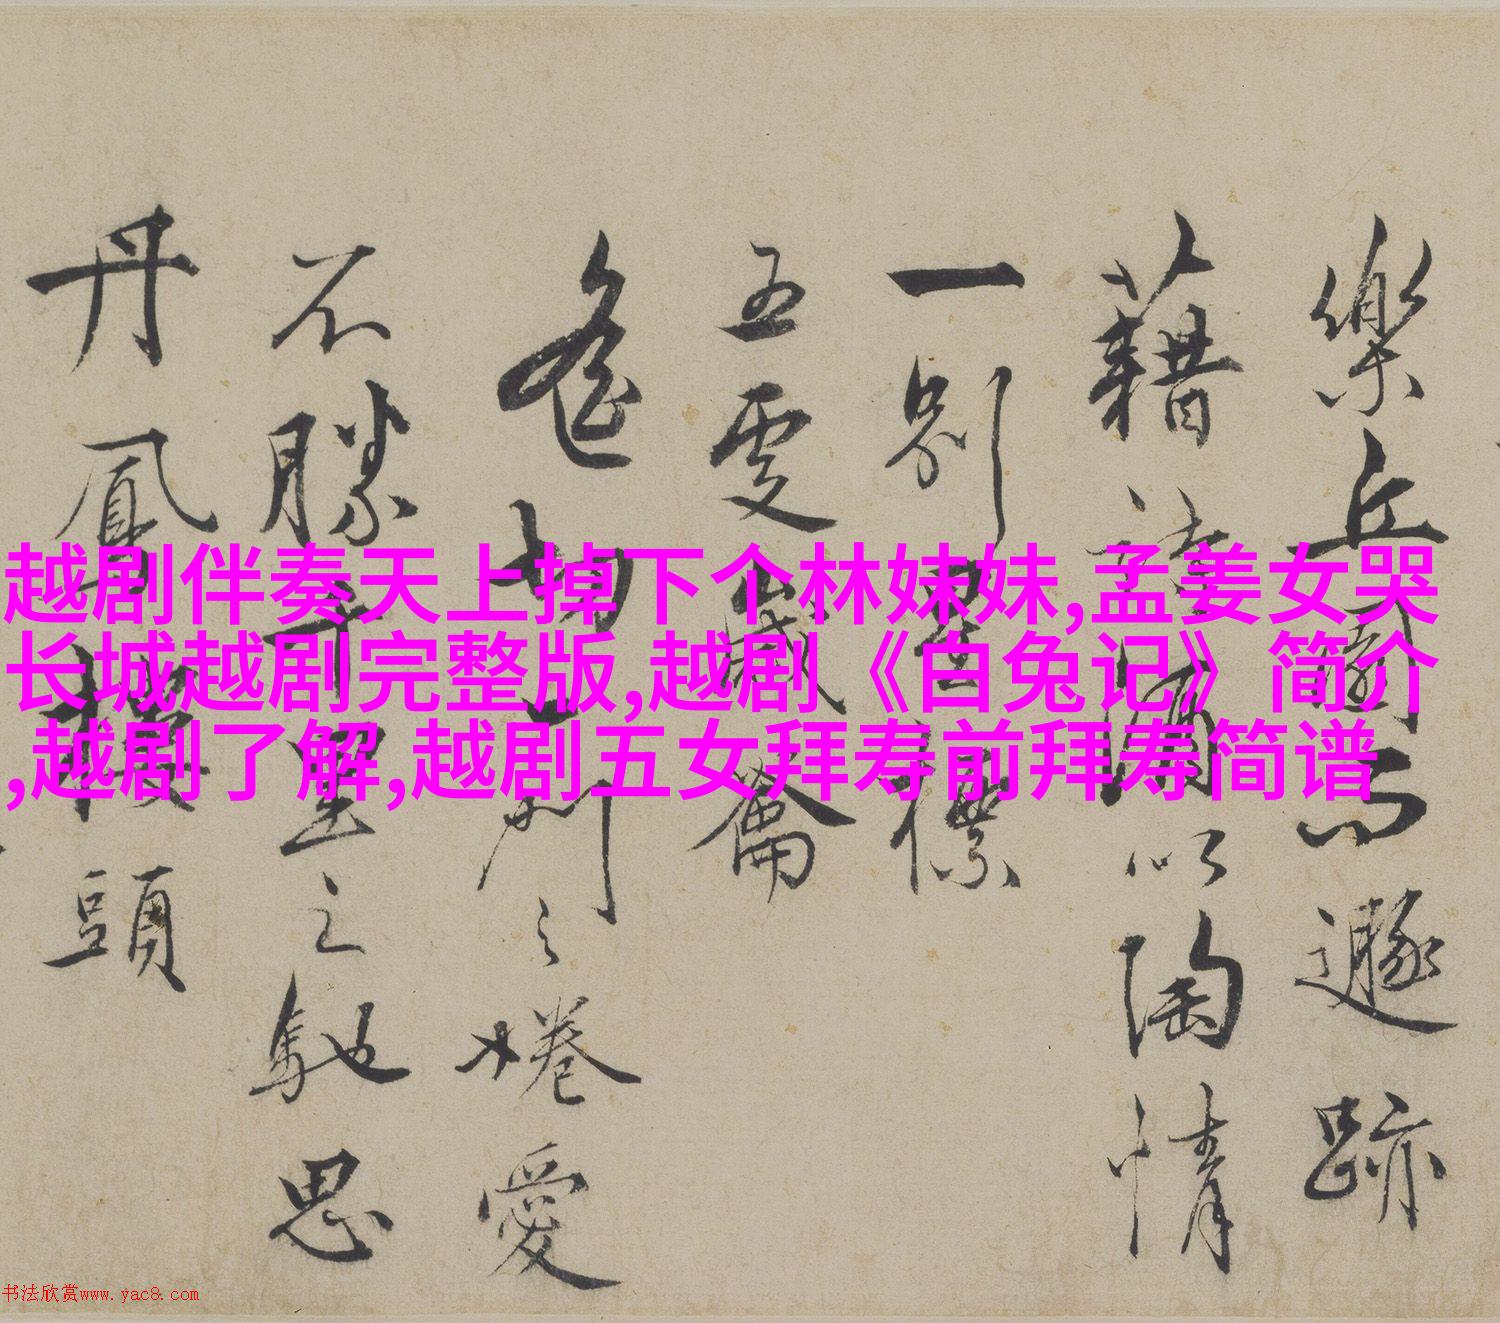 樂丘園而遯跡
藉詩酒以陶情
一別
五更歲籥
切之惓愛
不勝千里之馳思
丹鳳樓頭
越剧伴奏天上掉下个林妹妹,孟姜女哭
长城越剧完整版,越剧《白兔记》简介
,越剧了解,越剧五女拜寿前拜寿简谱
书法欣赏www.yac8.com